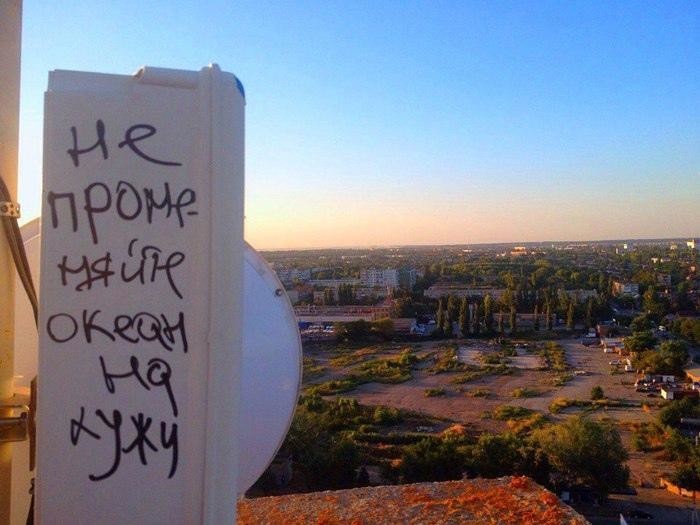 не
проме-
няйте
океан
на
лужу